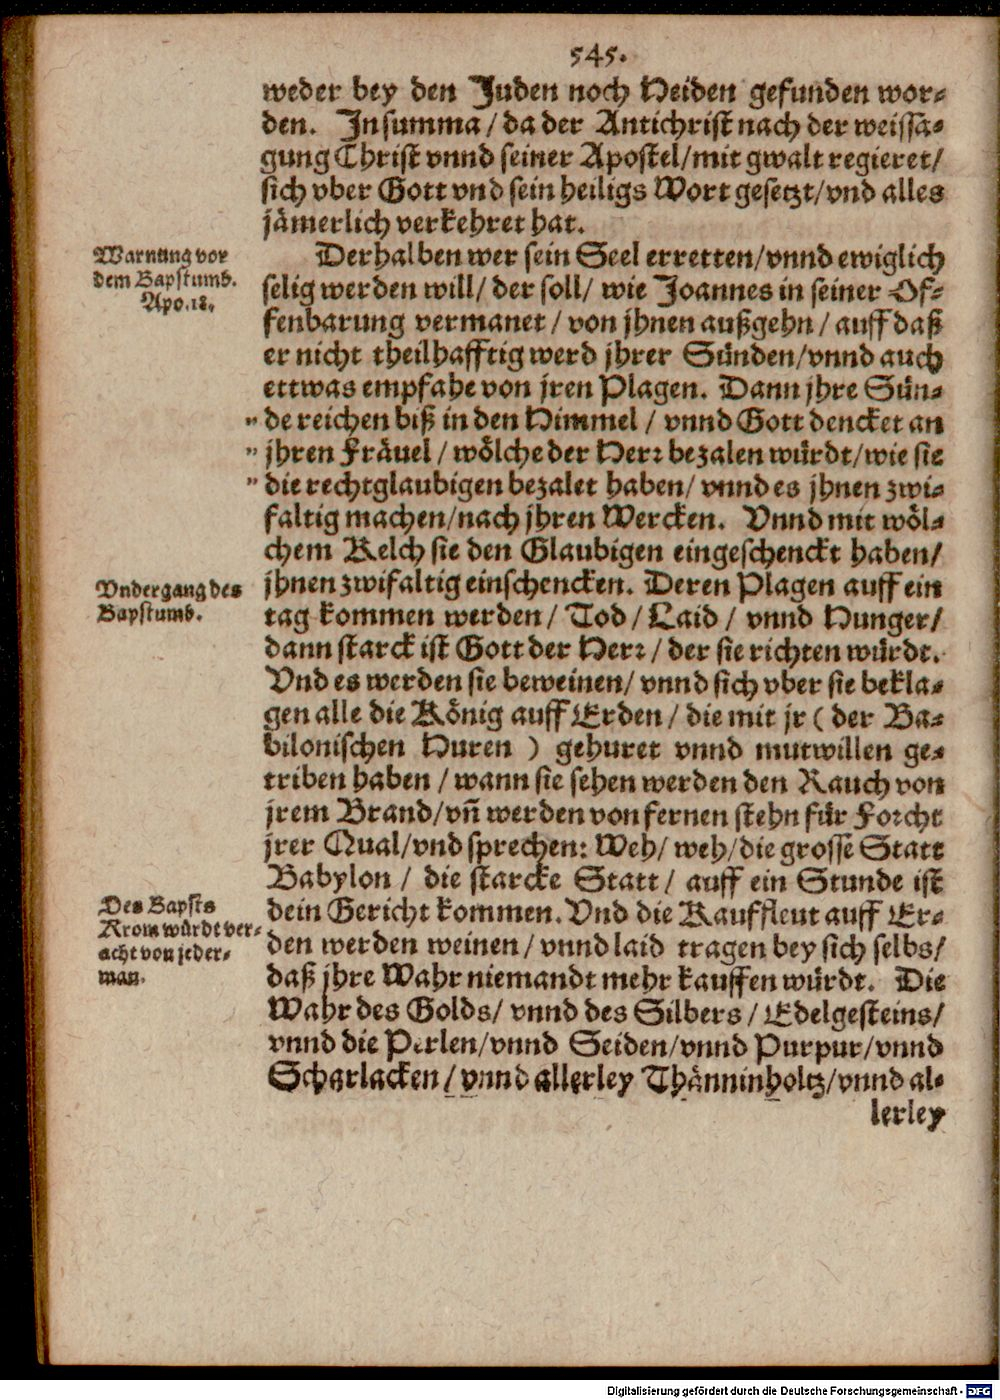 545.
weder bey den Juden noch Heiden gefunden wor-
den. Jn summa / da der Antichrist nach der weissa-
gung Christ vnnd seiner Apostel/mit gwalt regieret/
sich vber Gott vnd sein heiligs Wort gesetzt/vnd alles
jämerlich verkehret hat.
Warnung vor
dem Bapstumb.
Apo.18.
Derhalben wer sein Seel erretten/vnnd ewiglich
selig werden will/ der soll/ wie Joannes in seiner Of-
fenbarung vermanet / von jhnen außgehn / auff daß
er nicht theilhafftig werd jhrer Sünden/vnnd auch
ettwas empfahe von jren Plagen. Dann jhre Sün-
" de reichen biß in den Himmel / vnnd Gott dencket an
" jhren Fräuel / wölche der Herr bezalen würdt/wie sie
" die rechtglaubigen bezalet haben/ vnnd es jhnen zwi-
faltig machen/nach jhren Wercken. Vnnd mit wöl-
chem Kelch sie den Glaubigen eingeschenckt haben/
Vndergang des
Bapstumb.
jhnen zwifaltig einschencken. Deren Plagen auff ein
tag kommen werden/ Tod / Laid / vnnd Hunger/
dann starck ist Gott der Herr / der sie richten würdt.
Vnd es werden sie beweinen/ vnnd sich vber sie bekla-
gen alle die König auff Erden / die mit jr ( der Ba-
bilonischen Huren ) gehuret vnnd mutwillen ge-
triben haben / wann sie sehen werden den Rauch von
jrem Brand/vñ werden von fernen stehn für Forcht
jrer Qual/vnd sprechen: Weh/ weh/die grosse Statt
Babylon / die starcke Statt / auff ein Stunde ist
Des Bapsts
Krom würdt ver-
acht von jeder-
man.
dein Gericht kommen. Vnd die Kauffleut auff Er-
den werden weinen / vnnd laid tragen bey sich selbs/
daß jhre Wahr niemandt mehr kauffen würdt. Die
Wahr des Golds/ vnnd des Silbers / Edelgesteins/
vnnd die Perlen/vnnd Seiden/vnnd Purpur/vnnd
Scharlacken / vnnd allerley Thänninholtz/vnnd al-
lerley
Digitalisierung gefördert durch die Deutsche Forschungsgemeinschaft - DFG